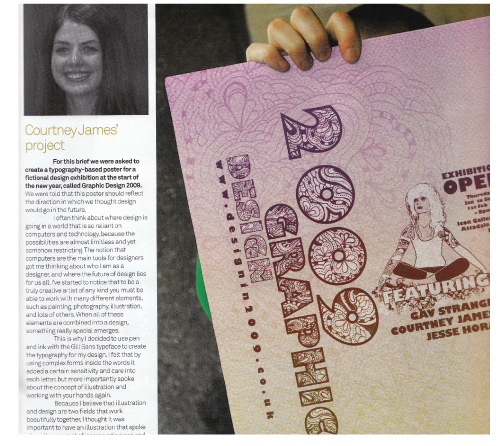 Courtney James'
project
For this brief we were asked to
create a typography-based poster for a
fictional design exhibition at the start of
the new year, called Graphic Design 2009.
We were told that this poster should reflect
the direction in which we thought design
would go in the future.
I often think about where design is
going in a world that is so reliant on
computers and technology, because the
possibilities are almost limitless and yet
somehow restricting. The notion that
computers are the main tools for designers
got me thinking about who I am as a
designer, and where the future of design lies
for us all. I've started to notice that to be a
truly creative artist of any kind you must be
able to work with many different elements,
such as painting, photography, illustration,
and lots of others. When all of these
elements are combined into a design,
something really special emerges.
This is why I decided to use pen
and ink with the Gill Sans typeface to create
the typography for my design. I felt that by
using complex forms inside the words it
added a certain sensitivity and care into
each letter, but more importantly spoke
about the concept of illustration and
working with your hands again.
Because I believe that illustration
and design are two fields that work
beautifully together, I thought it was
important to have an illustration that spoke
2009
GRAPHIC
DESIGN
www.designin2009.co.uk
EXHIBITION
OPEN
FEATURING
GAV STRANGE
COURTNEY JAMES
JESSE HORA